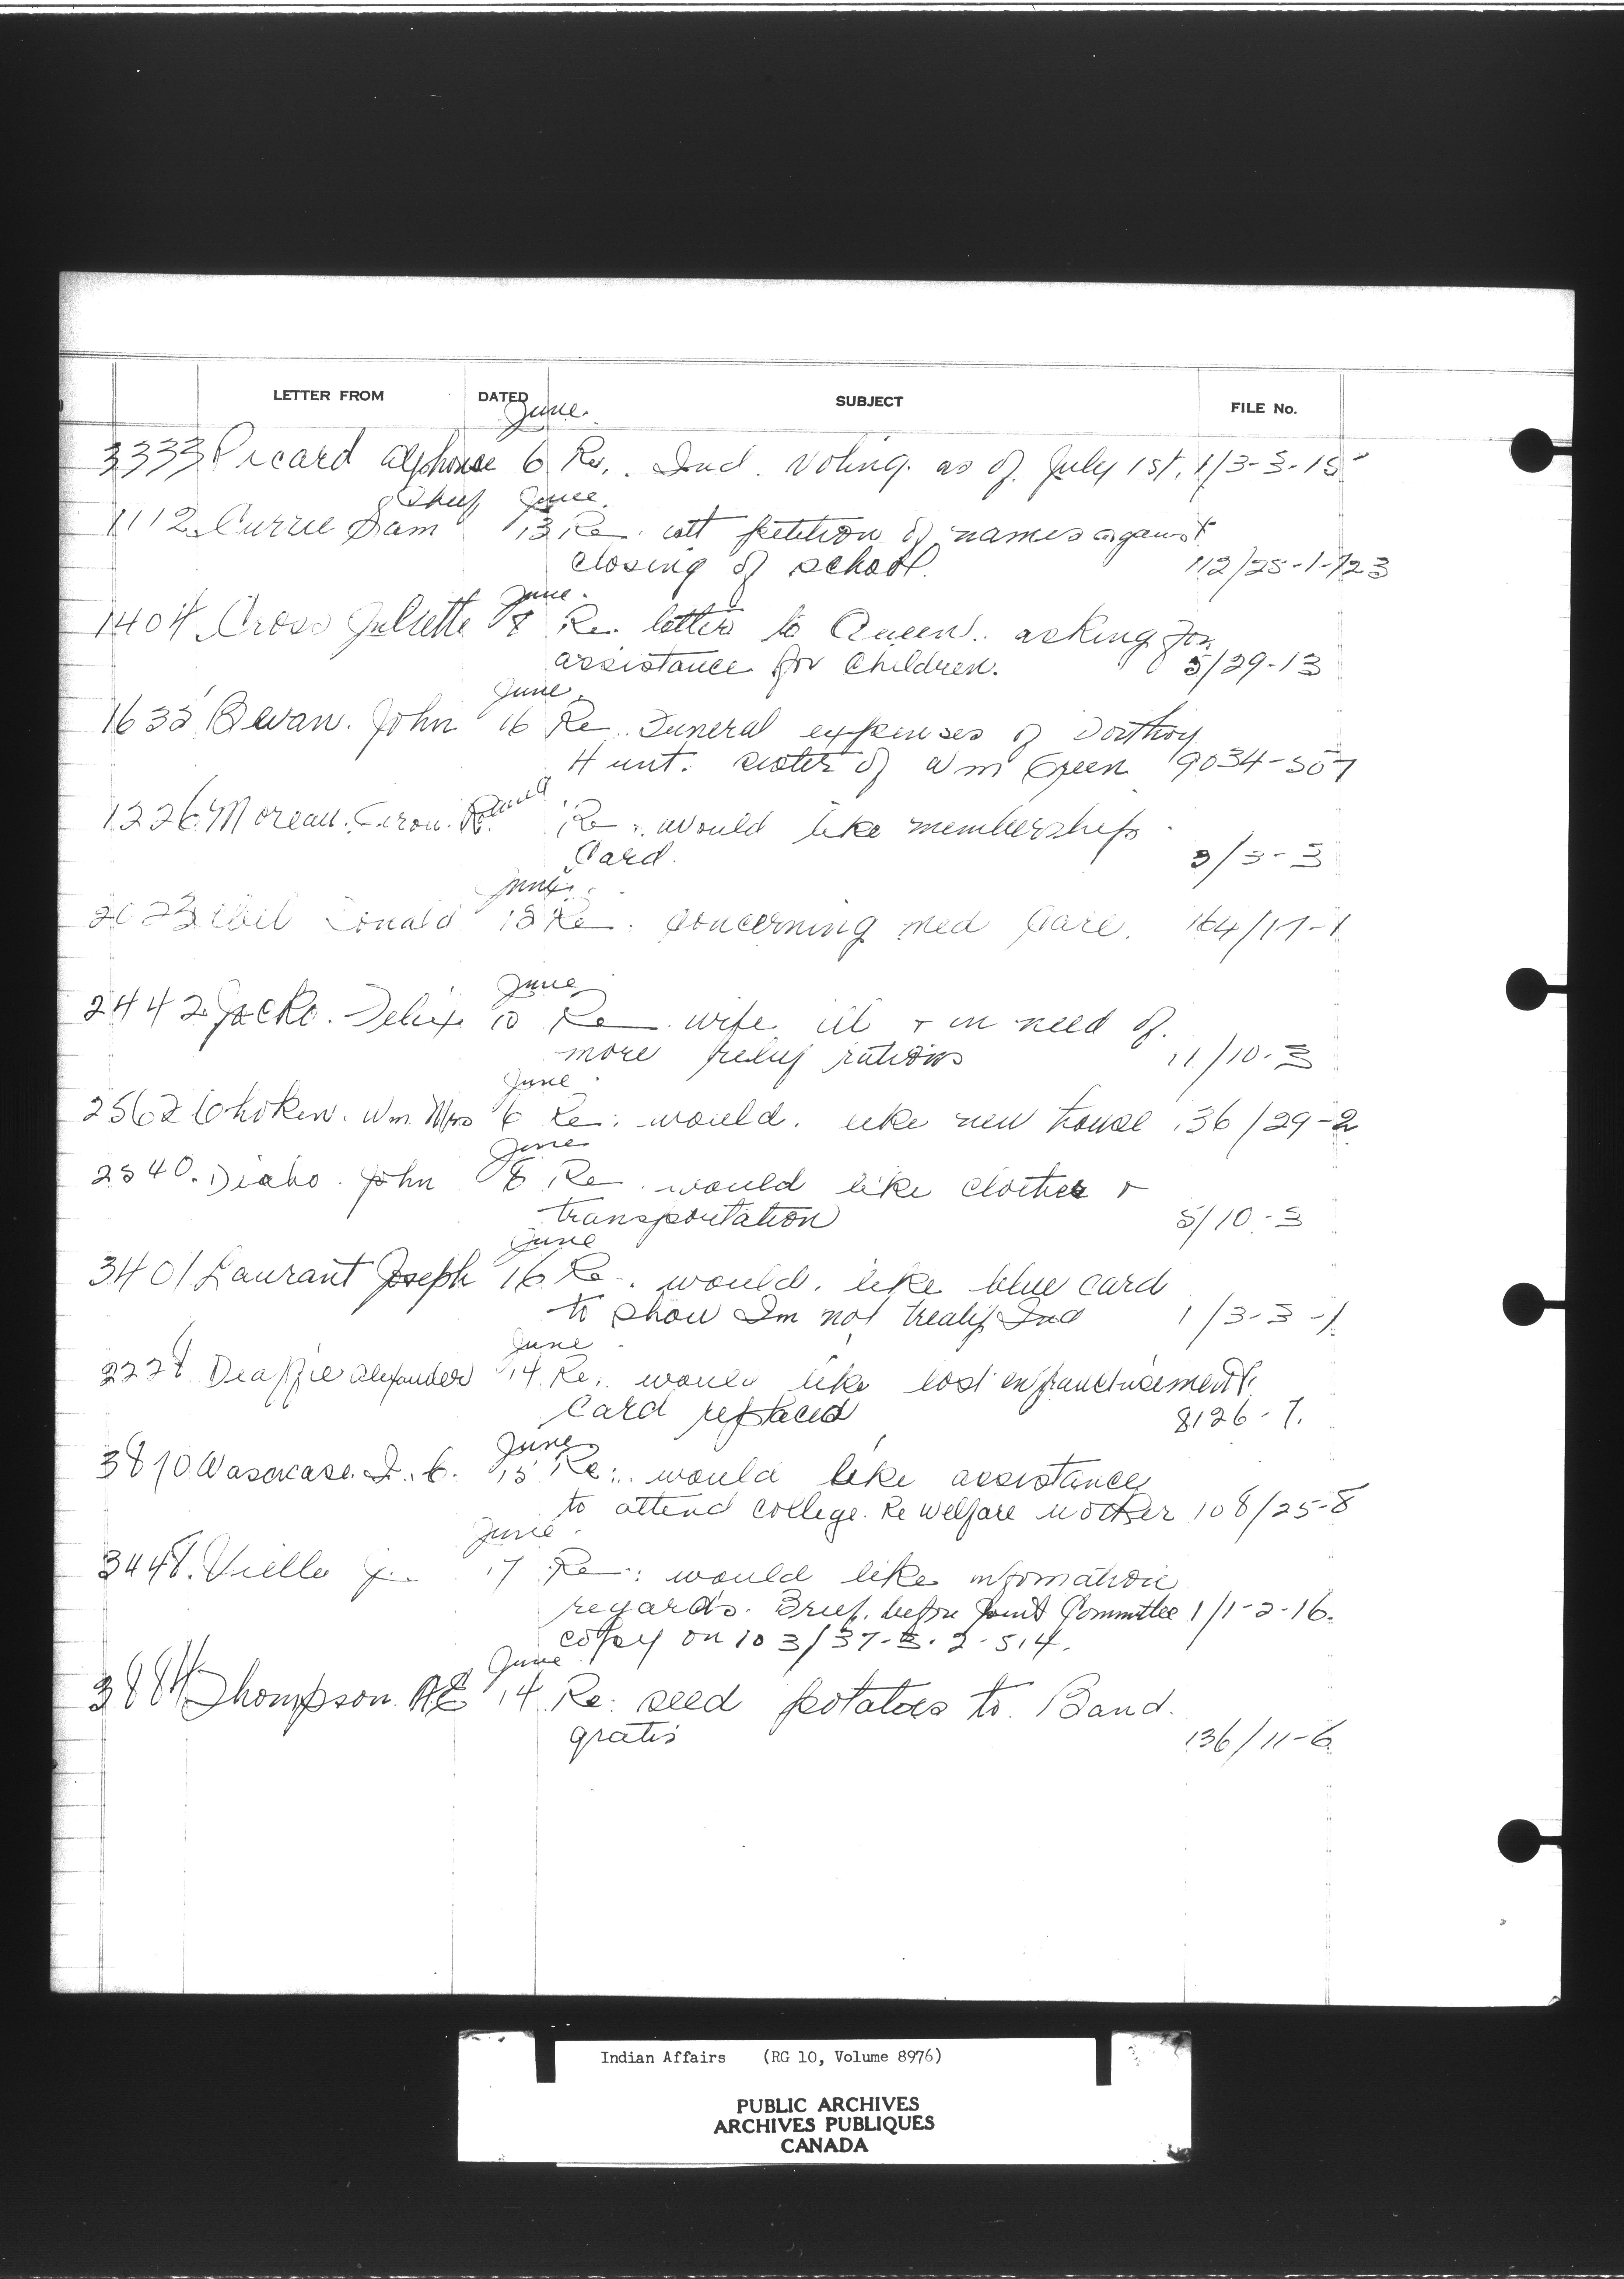 LETTER FROM DATED SUBJECT FILE No.
June.
3333 Picard Alphonse 6 Re. Ind. Voting. as of July 1st. 1/3-3-15
Chief June
1112 Currie Sam 13 Re. att petition of names against
closing of school. 112/25-1-123
June.
1404 Cross Juliette 8 Re. letter to Queen. asking for
assistance for Children. 5/29-13
June
1635 Bevan. John 16 Re. Funeral expenses of Dorthoy
Hunt. sister of Wm Green 9034-507
June 9
1226 Moreau. Re. would like membership
Card. 3/3-3
June
Donald 15 Re. Concerning med Care. 164/17-1
June
2442 Jocko. Felix 10 Re wife ill + in need of
more relief rations 11/10-3
June
2562 Choken. Wm Mrs 6 Re: would. like new house 136/29-2
June
2540. Diabo. John 8 Re would like clothes +
transportation 5/10-3
June
3401 Laurant Joseph 16 Re. would. like blue card
to show Im not treaty Ind 1/3-3-1
June
2228 Alexander 14 Re. would like lost enfranchisement
Card replaced 8126-7.
June
3810 Wasacase. I. C. 15 Re: would like assistance
to attend college. Re welfare worker 108/25-8
June.
3448. Vielle 17 Re: would like infomation
regards. Brief. before Joint Committee 1/1-2-16.
copy on 103/37-2-514.
June
3884 Thompson. A E 14 Re: seed potatoes to Band.
gratis 136/11-6
Indian Affairs (RG 10, Volume 8976)
PUBLIC ARCHIVES
ARCHIVES PUBLIQUES
CANADA